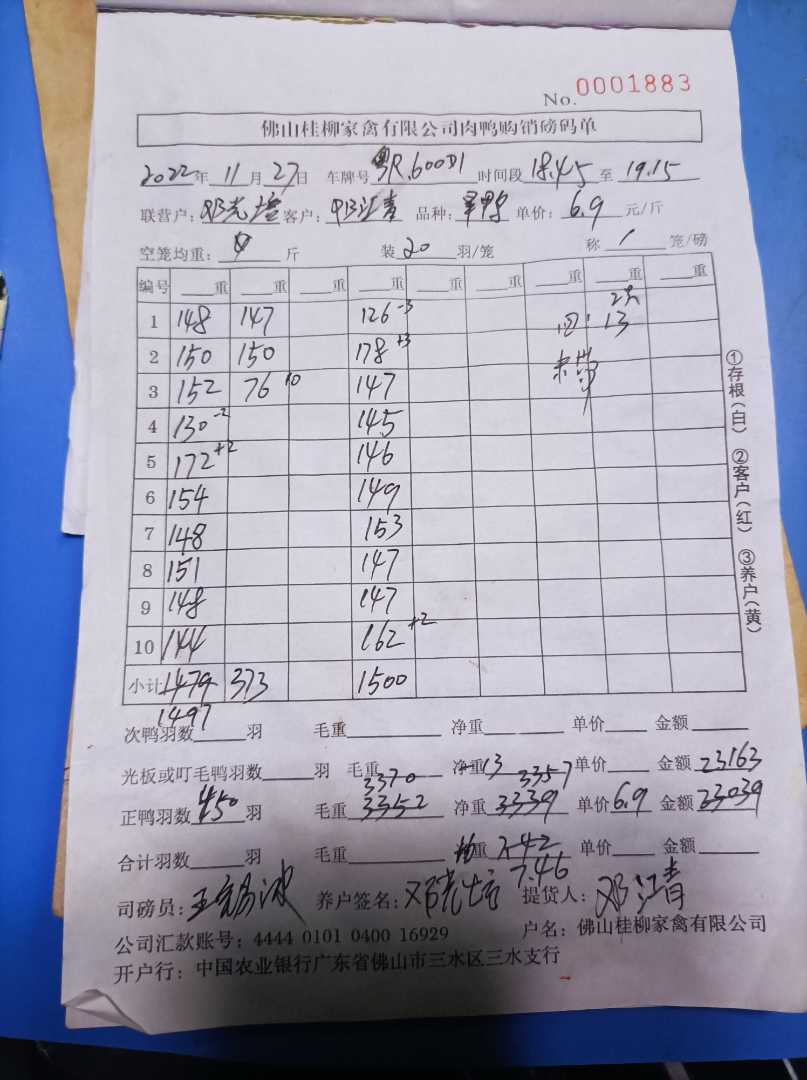 No. 0001883
佛山桂柳家禽有限公司肉鸭购销磅码单
2022年 11月 27日 车牌号 粤R.600D1 时间段 18.45 至 19.15
联营户: 客户: 邓江青 品种: 单价: 6.9 元/斤
空笼均重: 斤 装 20 羽/笼 称 1 笼/磅
编号 重 重 重 重 重 重 重 重 重
1 148 147 126 -3 13
2 150 150 178 +3
3 152 76 10 147
4 130 -2 145
5 172 +2 146
6 154 149
7 148 153
8 151 147
9 148 147
10 144 162 +2
小计 1479 373 1500
1497
次鸭羽数 羽 毛重 净重 单价 金额
光板或叮毛鸭羽数 羽 毛重 净重 -13 单价 金额 23163
3370 3357
正鸭羽数 450 羽 毛重 3352 净重 3339 单价 6.9 金额 23039
合计羽数 羽 毛重 重 7.42 单价 金额
7.46
司磅员: 养户签名: 提货人: 邓江青
公司汇款账号: 4444 0101 0400 16929 户名: 佛山桂柳家禽有限公司
开户行: 中国农业银行广东省佛山市三水区三水支行
①存根(白) ②客户(红) ③养户(黄)